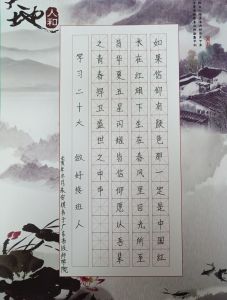 人和
如果信仰有颜色那一定是中国红
来在红旗下生在春风里目光所至
皆华夏五星闪耀皆信仰愿以吾辈
之青春捍卫盛世之中华
学习二十大 做好接班人